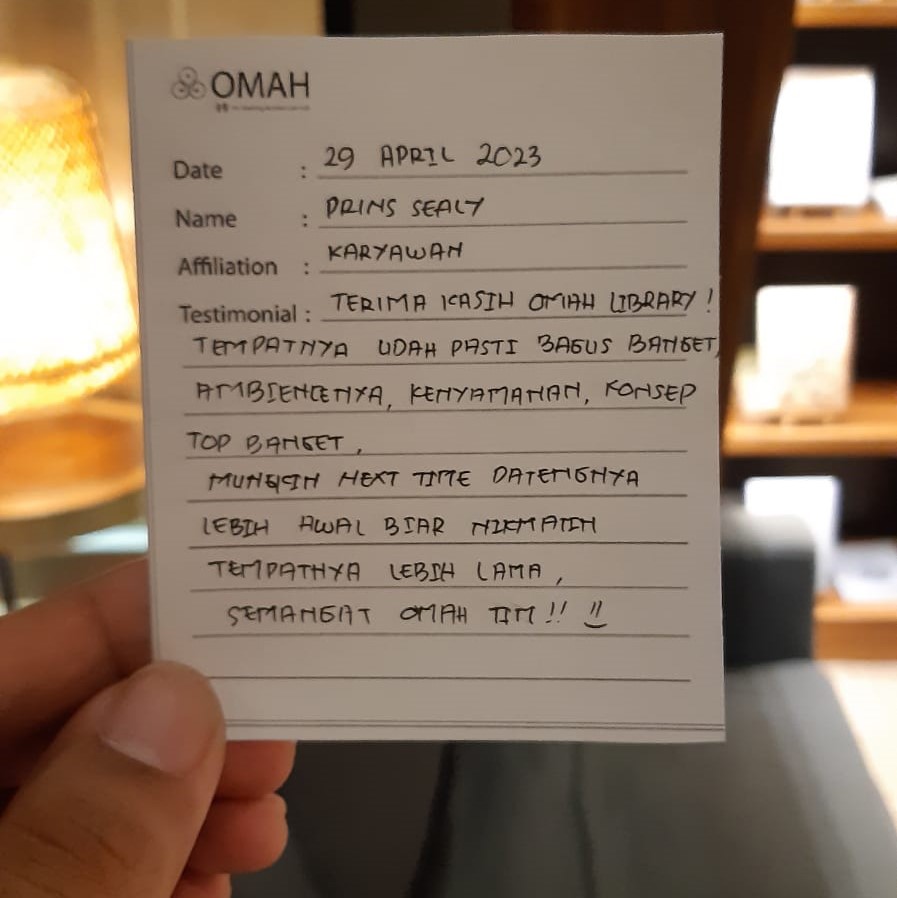 OMAH
Date : 29 APRIL 2023
Name : PRINS SEALY
Affiliation : KARYAWAN
Testimonial : TERIMA KASIH OMAH LIBRARY !
TEMPATNYA UDAH PASTI BAGUS BANGET,
AMBIENCENYA, KENYAMANAN, KONSEP
TOP BANGET,
MUNGKIN NEXT TIME DATENGNYA
LEBIH AWAL BIAR NIKMATIN
TEMPATNYA LEBIH LAMA,
SEMANGAT OMAH TIM !! :)